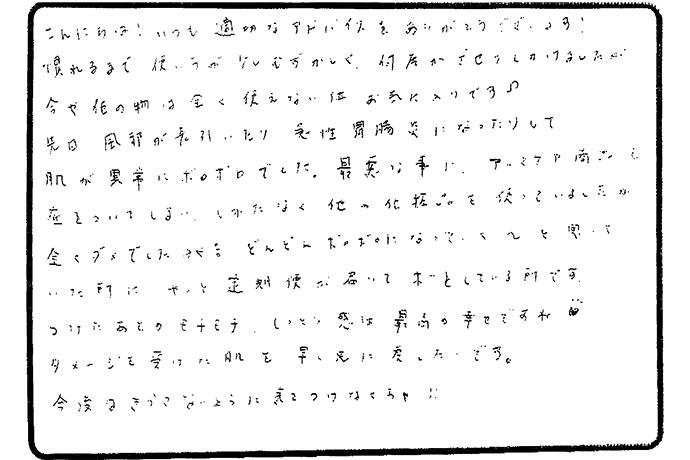 こんにちは！いつも適切なアドバイスをありがとうございます！
慣れるまで使い方が少しむずかしく、何度かさせつしかけましたが
今や他の物は全く使えない位お気に入りです♪
先日風邪が長引いたり急性胃腸炎になったりして
肌が異常にボロボロでした。最悪な事に、アッ 商品も
底をついてしまい、しかたなく他の化粧品を使っていましたが
全くダメでした どんどんボロボロになっていく〜と思って
いた所に やっと定期便が届いてホッとしている所です。
つけたあとのモチモチ、しっとり感は最高の幸せですね
ダメージを受けた肌を早く元に戻したいです。
今後は きらさないように気をつけなくちゃ!!